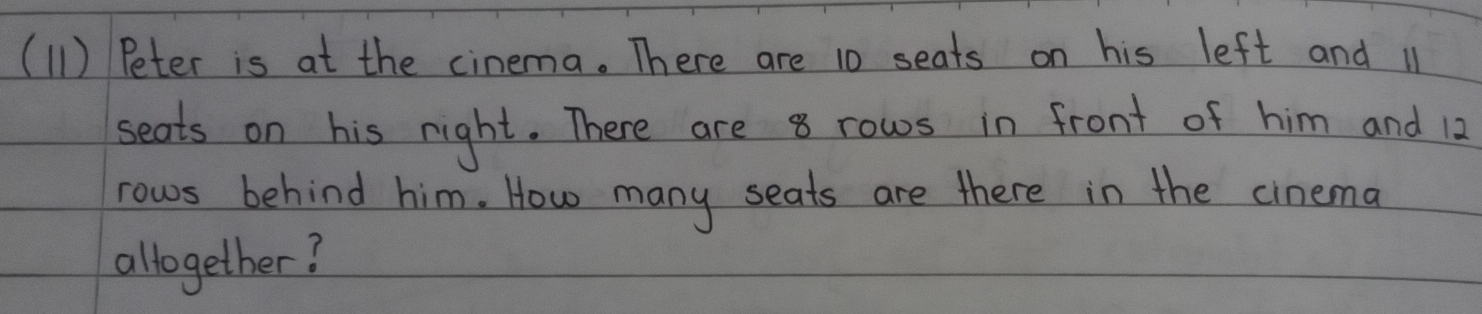 (11) Peter is at the cinema. There are 10 seats on his left and 11
seats on his right. There are 8 rows in front of him and 12
rows behind him. How many seats are there in the cinema
altogether?